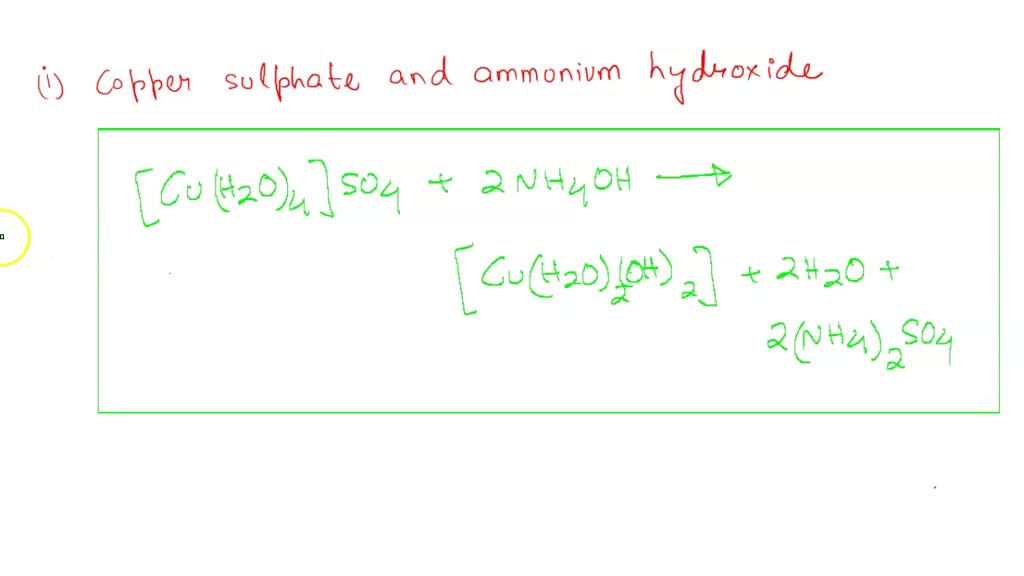 (i) Copper sulphate and ammonium hydroxide
[Cu(H2O)4]SO4 + 2NH4OH ⟶
[Cu(H2O)2(OH)2] + 2H2O +
2(NH4)2SO4